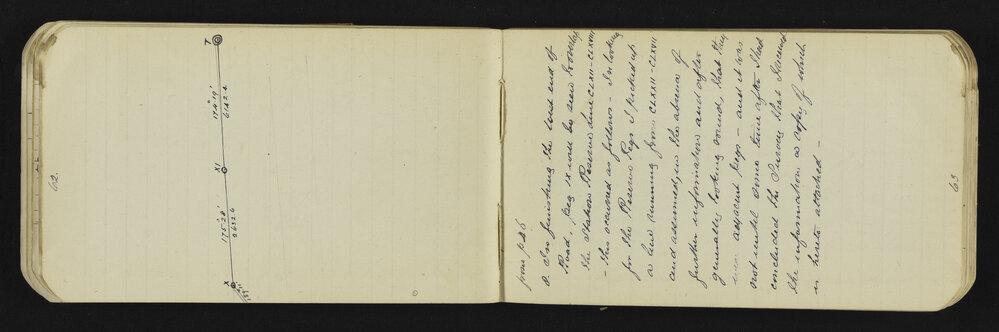 62.
T
174° 19'
6142.6
XI
175° 28'
2632.6
X
63
from p 26
Also finishing the West end of
Road, peg IX will be seen to overlap
the Station Reserve line CLXII-CLXVII
- this occurred as follows - In looking
for the Reserve Pegs I picked up
a line running from CLXXII-CLXVII
and assumed, in the absence of
further information and after
generally looking round, that they
were adjacent pegs - and it was
not until some time after I had
concluded the Survey that I received
the information a copy of which
is hereto attached -